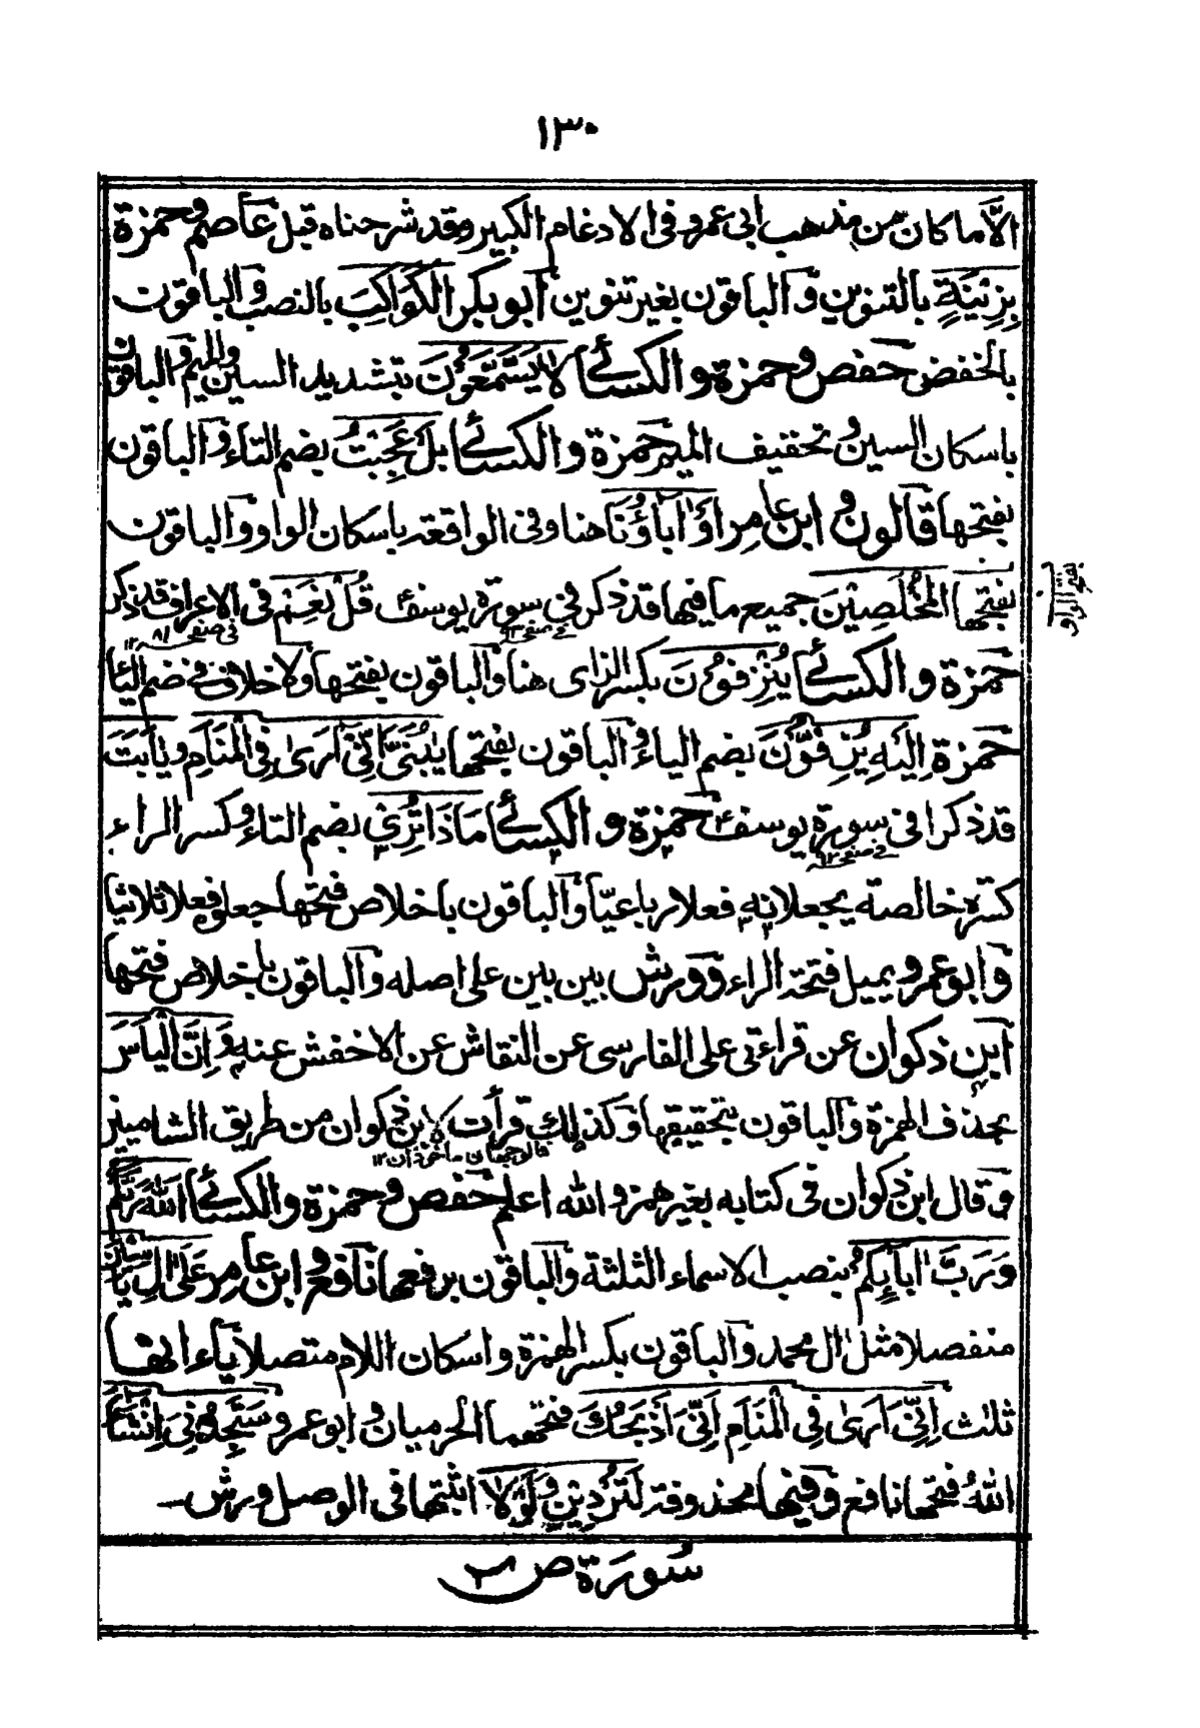 ١٣٠
الّا ما كان من مذهب ابى عمرو فى الادغام الكبير وقد شرحناه قبل عاصم وحمزة
بِزِيْنَةٍ بالتنوين والباقون بغير تنوين ابو بكر الْكَوَاكِبَ بالنصب والباقون
بالخفض حفص وحمزة والكسائے لَا يَسَّمَّعُوْنَ بتشديد السين والميم والباقون
باسكان السين وتخفيف الميم حمزة والكسائے بَلْ عَجِبْتُ بضم التاء والباقون
بفتحها قالون وابن عامر اَوْ اٰبَاؤُنَا هنا وفى الواقعة باسكان الواو والباقون
بفتحها الْمُخْلَصِيْنَ جميع ما فيها قد ذكر فى سورة يوسف قُلْ نَعَمْ فى الاعراف قد ذكر
بفتح الواو
حمزة والكسائے يُنْزِفُوْنَ بكسر الزاى هنا والباقون بفتحها ولا خلاف فى ضم اليا
حمزة اِلَيْهِ يُزِفُّوْنَ بضم الياء والباقون بفتحها يٰبُنَىَّ اِنِّىْ اَرٰى فِى الْمَنَامِ ويٰاَبَتِ
قد ذكرا فى سورة يوسف حمزة والكسائے مَاذَا تُرِىْ بضم التاء وكسر الراء
كسرة خالصة يجعلانه فعلا رباعيّا والباقون باخلاص فتحها جعلوه فعلا ثلاثيا
وابو عمرو يميل فتحة الراء وورش بين بين على اصله والباقون باخلاص فتحها
ابن ذكوان عن قراءتى على الفارسى عن النقاش عن الاخفش عنه وَاِنَّ الْيَاسَ
بحذف الهمزة والباقون بتحقيقها وكذلك قرأت لابن ذكوان من طريق الشاميين
وقال ابن ذكوان فى كتابه بغير همز والله اعلم حفص وحمزة والكسائے اَللّٰهَ رَبَّكُمْ
وَرَبَّ اٰبَآئِكُمُ بنصب الاسماء الثلثة والباقون برفعها نافع وابن عامر عَلٰى اٰلِ يَاسِيْنَ
منفصلا مثل اٰل محمد والباقون بكسر الهمزة واسكان اللام متصلا ياءاتها
ثلث اِنِّىْ اَرٰى فِى الْمَنَامِ اَنِّىْ اَذْبَحُكَ فتحهما الحرميان وابو عمرو سَتَجِدُنِىْ اِنْ شَآءَ
اللهُ فتحها نافع وفيها محذوفة لَتُرْدِيْنِ وَلَوْلَا اثبتها فى الوصل ورش
سورة ص